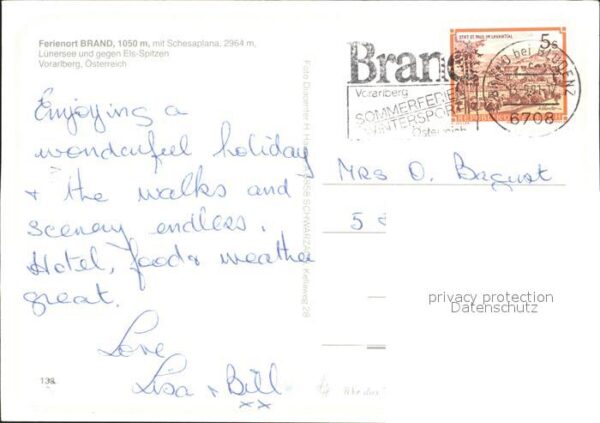 Ferienort BRAND, 1050 m, mit Schesaplana, 2964 m,
Lünersee und gegen Els-Spitzen
Vorarlberg, Österreich
Enjoying a
wonderful holiday
+ the walks and
scenery endless.
Hotel, food & weather
great.
Love
Lisa + Bill
xx
138
SCHWARZACH, Kellaweg 28
Brand
Vorarlberg
SOMMERFERIEN
WINTERSPORT
Österreich
BRAND bei BLUDENZ
6708
STIFT ST. PAUL IM LAVANTTAL
5s
Mrs O.
5
privacy protection
Datenschutz